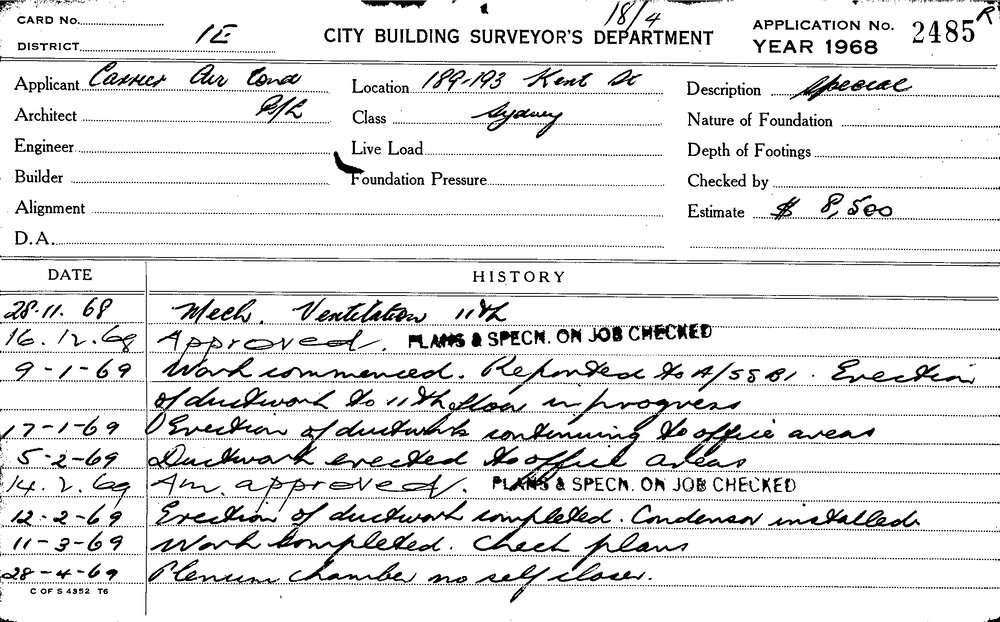 18/4 R
CARD No.
DISTRICT 1E
CITY BUILDING SURVEYOR'S DEPARTMENT
APPLICATION No. 2485
YEAR 1968
Applicant Carrier Air Cond
Location 189-193 Kent St
Description Special
Architect P/L
Class Sydney
Nature of Foundation
Engineer
Live Load
Depth of Footings
Builder
Foundation Pressure
Checked by
Alignment
Estimate $ 8,500
D.A.
DATE HISTORY
28.11.68 Mech. Ventilation 11th
16.12.68 Approved. PLANS & SPECN. ON JOB CHECKED
9-1-69 Work commenced. Reported to A/SSBI. Erection
of ductwork to 11th floor in progress
17-1-69 Erection of ductwork continuing to office areas
5-2-69 Ductwork erected to office areas
14.2.69 Am. approved. PLANS & SPECN. ON JOB CHECKED
12-2-69 Erection of ductwork completed. Condensor installed.
11-3-69 Work Completed. Check plans
28-4-69 Plenum chamber no self closer.
C OF S 4352 T6